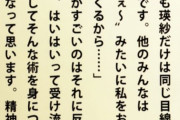 も瑛紗だけは同じ目線
です。他のみんなは
ぇ〜」みたいに私をお
くるから……」
がすごいのはそれに反
、はいはいって受け流
してそんな術を身につ
なって思います。精神